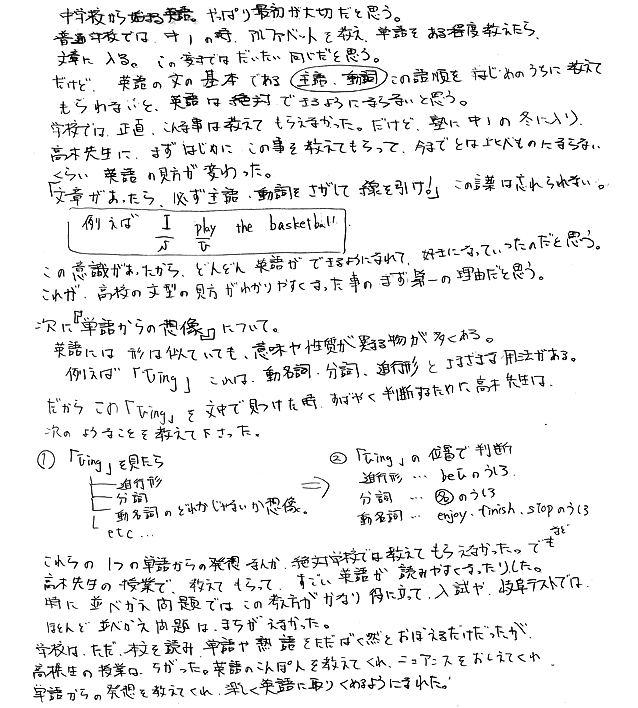 中学校から始まる英語。やっぱり最初が大切だと思う。
普通学校では、中1の時、アルファベットを教え、単語をある程度教えたら、
文章に入る。この変まではだいたい同じだと思う。
だけど、英語の文の基本である 主語、動詞 この語順をはじめのうちに教えて
もらわないと、英語は絶対できるようにならないと思う。
学校では、正直、こんな事は教えてもらえなかった。だけど、塾に中1の冬に入り、
高木先生に、まずはじめに、この事を教えてもらって、今までとは比べものにならない
くらい 英語の見方が変わった。
「文章があったら、必ず主語・動詞をさがして線を引け!」この言葉は忘れられない。
例えば I play the basketball.
S V
この意識があったから、どんどん英語ができるようになれて、好きになっていったのだと思う。
これが、高校の文型の見方がわかりやすくなった事のまず第一の理由だと思う。
次に『単語からの想像』について。
英語には形は似ていても、意味や性質が異る物が多くある。
例えば「Ving」これは、動名詞、分詞、進行形とさまざまな用法がある。
だからこの「Ving」を文中で見つけた時、すばやく判断するために高木先生は、
次のようなことを教えて下さった。
① 「Ving」を見たら ⇒ ② 「Ving」の位置で判断
進行形 進行形 … beVのうしろ
分詞 分詞 … 名のうしろ
動名詞のどれかじゃないか想像。 動名詞 … enjoy、finish、stopのうしろ
etc… など
これらの1つの単語からの発想なんか、絶対学校では教えてもらえなかった。でも
高木先生の授業で、教えてもらって、すごい英語が読みやすくなったりした。
特に並べかえ問題ではこの考え方がかなり役に立って、入試や、岐阜テストでは、
ほとんど並べかえ問題は、まちがえなかった。
学校は、ただ、本文を読み、単語や熟語をただばく然とおぼえるだけだったが、
高木先生の授業は、ちがった。英語のこんぽんを教えてくれ、ニュアンスをおしえてくれ、
単語からの発想を教えてくれ、楽しく英語に取りくめるようになれた。